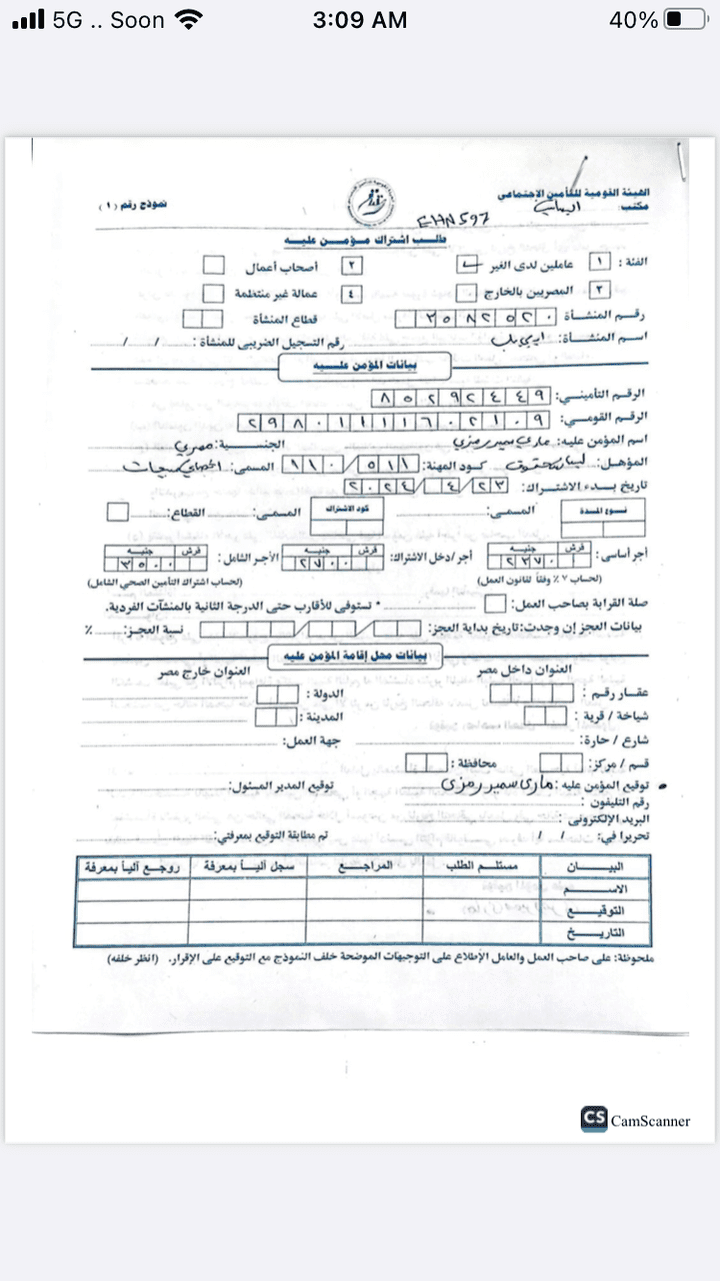 5G .. Soon 3:09 AM 40%
الهيئة القومية للتأمين الاجتماعي
مكتب:
نموذج رقم (١)
EHN597
طلب اشتراك مؤمن عليه
الفئة : ١ عاملين لدى الغير ٢ أصحاب أعمال
٣ المصريين بالخارج ٤ عمالة غير منتظمة
رقم المنشأة ٣٥٨٢٥٢٠ قطاع المنشأة
اسم المنشأة: رقم التسجيل الضريبى للمنشأة : / /
بيانات المؤمن عليه
الرقم التأمينى: ٨٥٢٩٢٤٤٩
الرقم القومى: ٢٩٨٠١١١١٦٠٢١٠٩
اسم المؤمن عليه: ماري سمير رمزي الجنسية: مصري
المؤهل: ليسانس حقوق كود المهنة: ٥١١ / ١١٠ المسمى:
تاريخ بدء الاشتراك: ٢٣ / ٤ / ٢٠٢٤
نوع المدة المسمى: كود الاشتراك المسمى: القطاع:
أجر أساسى: قرش جنيه ٢٣٧٠ أجر/دخل الاشتراك: قرش جنيه ٢٧٠٠ الأجر الشامل : قرش جنيه ٣٥٠٠
(لحساب ٧٪ وفقاً لقانون العمل) (لحساب اشتراك التأمين الصحي الشامل)
صلة القرابة بصاحب العمل: * تستوفى للأقارب حتى الدرجة الثانية بالمنشآت الفردية.
بيانات العجز إن وجدت: تاريخ بداية العجز: / / نسبة العجز: ٪
بيانات محل إقامة المؤمن عليه
العنوان داخل مصر العنوان خارج مصر
عقار رقم : الدولة :
شياخة / قرية : المدينة :
شارع / حارة: جهة العمل:
قسم / مركز: محافظة :
توقيع المؤمن عليه : ماري سمير رمزي توقيع المدير المسئول:
رقم التليفون:
البريد الإلكترونى :
تحريرا في: / / تم مطابقة التوقيع بمعرفتى:
البيــــان مستلم الطلب المراجع سجل آلياً بمعرفة روجع آلياً بمعرفة
الاســـم
التوقيـــع
التاريـــخ
ملحوظة: على صاحب العمل والعامل الإطلاع على التوجيهات الموضحة خلف النموذج مع التوقيع على الإقرار. (انظر خلفه)
CS CamScanner